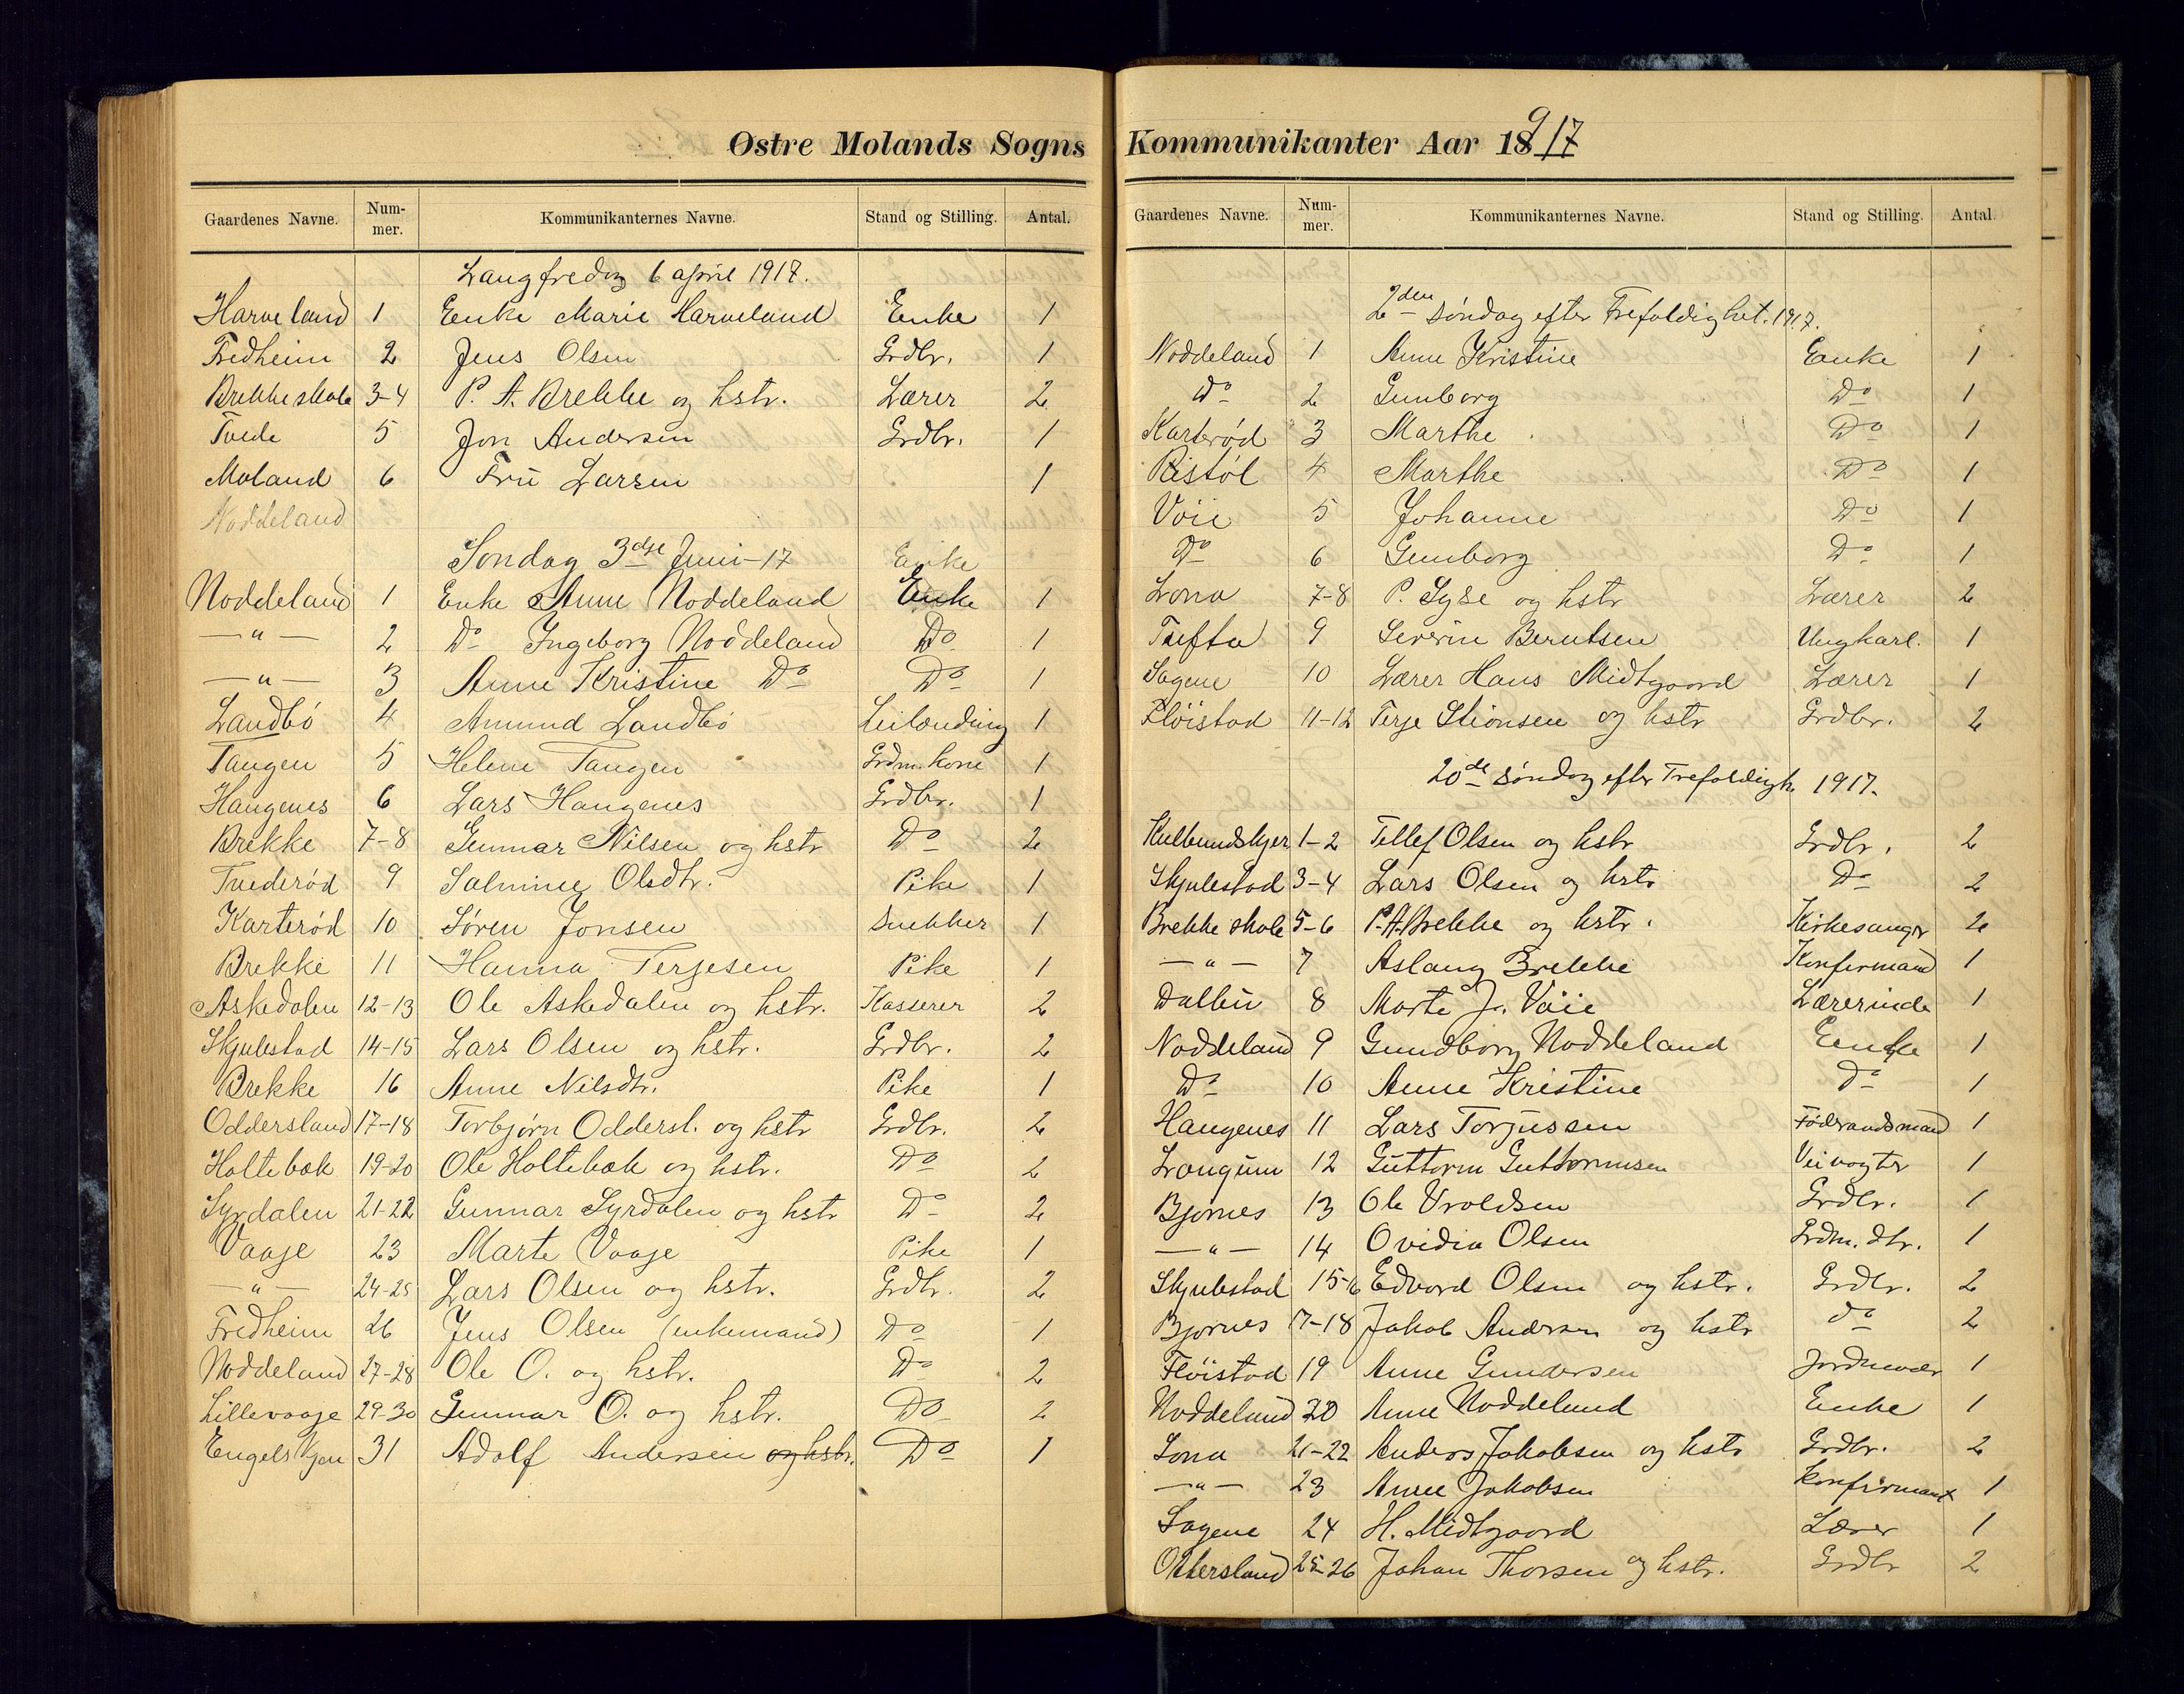 Østre Molands Sogns
Gaardenes Navne. Num-mer. Kommunikanternes Navne. Stand og Stilling. Antal.
Langfredag 6 april 1917.
Harveland 1 Enke Marie Harveland Enke 1
Fredheim 2 Jens Olsen Grdbr. 1
Brekkeskole 3-4 P. A. Brekke og hstr. Lærer 2
Tvede 5 Jon Andersen Grdbr. 1
Moland 6 Fru Larsen 1
Noddeland
Søndag 3dje Juni - 17 Enke
Noddeland 1 Enke Anne Noddeland Enke 1
— " — 2 Do Ingeborg Noddeland Do 1
— " — 3 Anne Kristine Do Do 1
Landbö 4 Amund Landbö Leilænding 1
Tangen 5 Helene Tangen Grdm. kone 1
Haugenes 6 Lars Haugenes Grdbr. 1
Brekke 7-8 Gunnar Nilsen og hstr Do 2
Tvederød 9 Salmine Olsdtr. Pike 1
Karterød 10 Søren Jonsen Snekker 1
Brekke 11 Hanna Terjesen Pike 1
Askedalen 12-13 Ole Askedalen og hstr. Kasserer 2
Skjulestad 14-15 Lars Olsen og hstr. Grdbr. 2
Brekke 16 Anne Nilsdtr. Pike 1
Oddersland 17-18 Torbjørn Oddersl. og hstr Grdbr. 2
Holtebæk 19-20 Ole Holtebæk og hstr. Do 2
Syrdalen 21-22 Gunnar Syrdalen og hstr Do 2
Vaaje 23 Marte Vaaje Pike 1
— " — 24-25 Lars Olsen og hstr. Grdbr. 2
Fredheim 26 Jens Olsen (enkemand) Do 1
Noddeland 27-28 Ole O. og hstr. Do 2
Lillevaaje 29-30 Gunnar O. og hstr. Do 2
Engelskjøn 31 Adolf Andersen og hstr. Do 1
Kommunikanter Aar 1917
Gaardenes Navne. Num-mer. Kommunikanternes Navne. Stand og Stilling. Antal.
2den søndag efter Trefoldighet. 1917.
Noddeland 1 Anne Kristine Enke 1
Do 2 Gunborg Do 1
Karterød 3 Marthe Do 1
Ristöl 4 Marthe Do 1
Vöie 5 Johanne Do 1
Do 6 Gunborg Do 1
Lona 7-8 P. Syse og hstr Lærer 2
Tufta 9 Severin Berntsen Ungkarl. 1
Sagene 10 Lærer Hans Midtgaard Lærer 1
Flöistad 11-12 Terje Stiansen og hstr Grdbr. 2
20de søndag efter Trefoldigh. 1917.
1-2 Tellef Olsen og hstr Grdbr. 2
Skjulestad 3-4 Lars Olsen og hstr Do 2
Brekke skole 5-6 P. A. Brekke og hstr. Kirkesanger 2
— " — 7 Aslaug Brekke Konfirmand 1
Dalbu 8 Marte J. Vöie Lærerinde 1
Noddeland 9 Gundborg Noddeland Enke 1
Do 10 Anne Kristine Do 1
Haugenes 11 Lars Torjussen Föderaadsmand 1
Langum 12 Guttorm Guttormsen Veivogter 1
Bjornes 13 Ole Vroldsen Grdbr. 1
— " — 14 Ovidia Olsen Grdm. dtr. 1
Skjulestad 15-6 Edvard Olsen og hstr. Grdbr. 2
Bjornes 17-18 Jakob Andersen og hstr do 2
Flöistad 19 Anne Gundersen Jordmoder 1
Noddeland 20 Anne Noddeland Enke 1
Lona 21-22 Anders Jakobsen og hstr Grdbr. 2
— " — 23 Anne Jakobsen konfirmant 1
Sagene 24 H. Midtgaard Lærer 1
Ottersland 25-26 Johan Thorsen og hstr. Grdbr 2